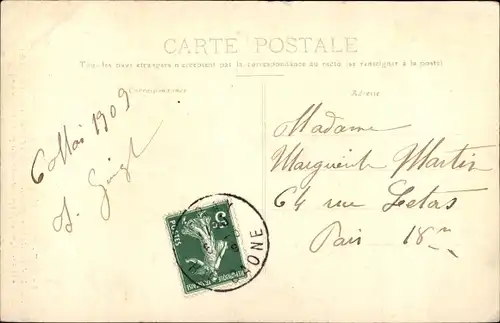 CARTE POSTALE
Tous les pays étrangers n'acceptent pas la correspondance au recto (se renseigner à la poste)
Correspondance
Adresse
6 Mai 1909
Madame
Marguerite Martin
64 rue
Paris 18
5
POSTES